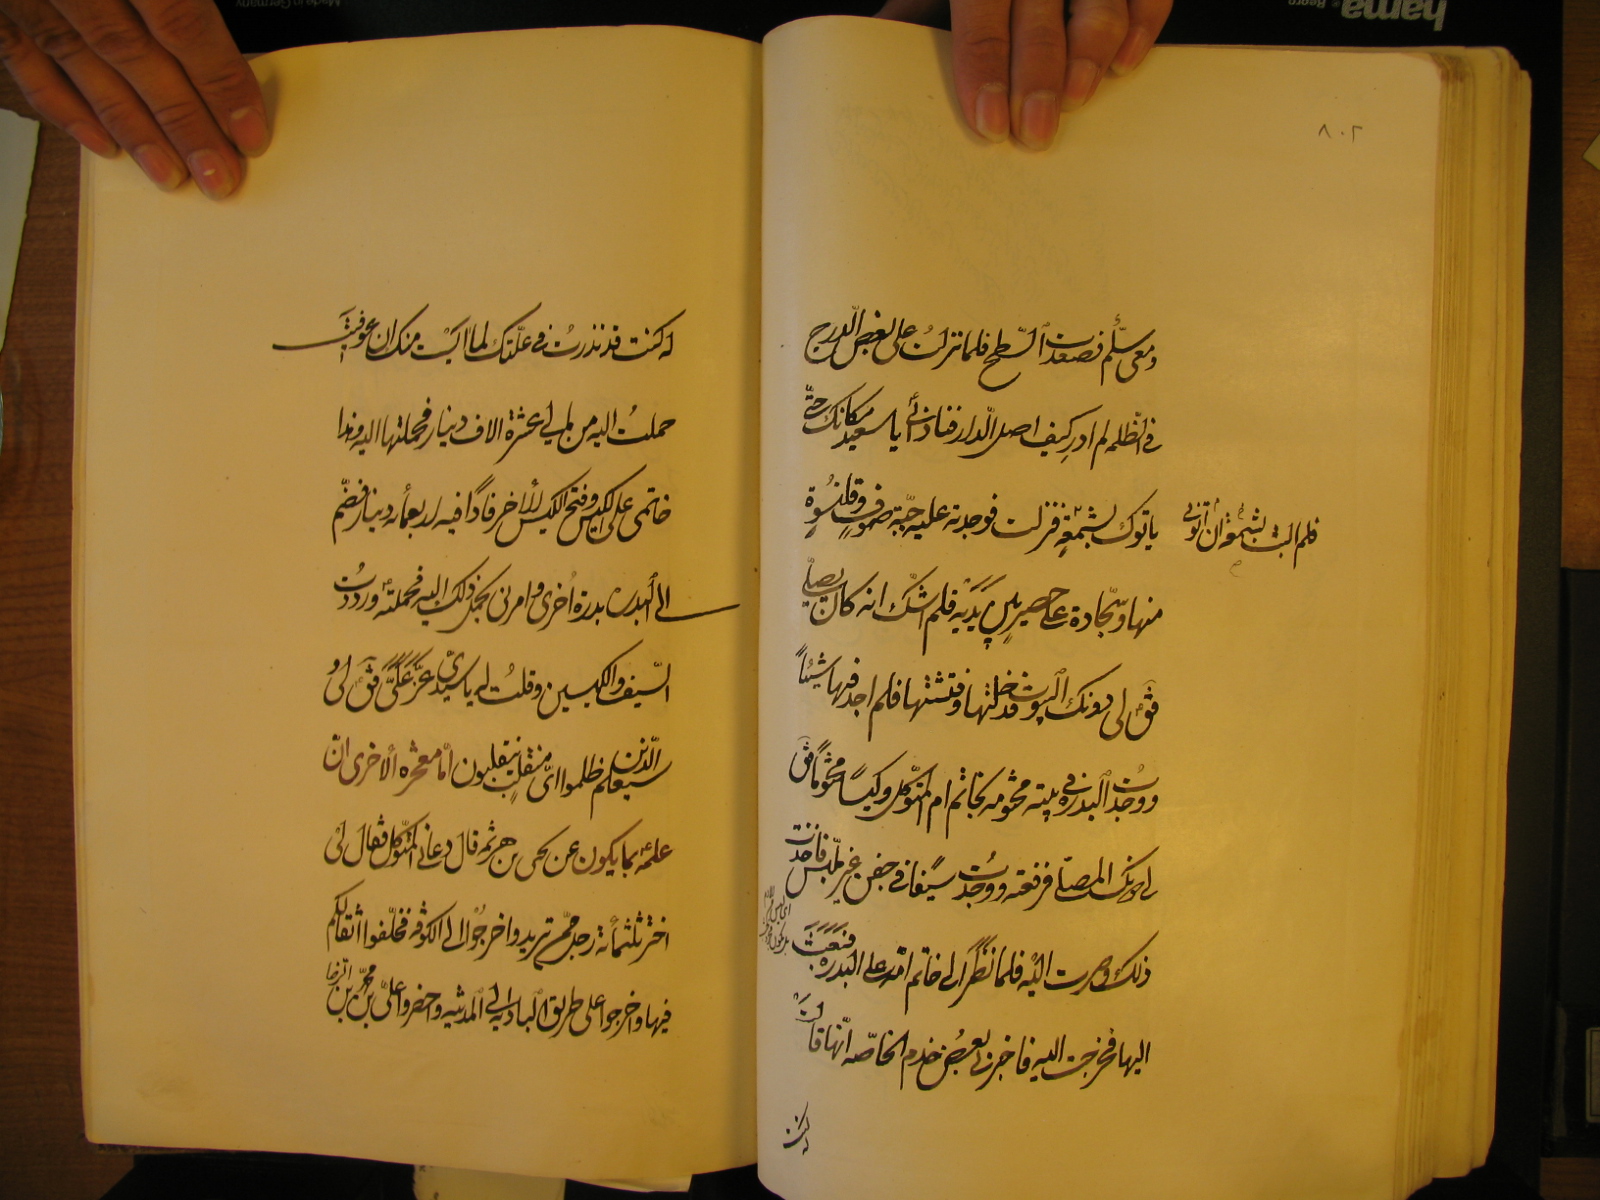 ٨٠٢
ومعى سلّم فصعدت السّطح فلما نزلت على بعض الدرج
فى الظلمه لم ادر كيف اصل الدار فنادانى يا سعيد مكانك حتّى
ياتوك بشمعة فنزلت فوجدته عليه جبّة صوف وقلنسوة
فلم البث بشمعة ان اتونى
منها وسجّادة على حصير بين يديه فلم اشكّ انه كان يصلى
فق لى دونك البيوت فدخلتها وفتشتها فلم اجد فيها شيئاً
ووجدت البدره فى بيته مختومه بخاتم ام المتوكل وكيساً مختوماً فق
لى دونك المصلّى فرفعته ووجدت سيفا فى جفن غير ملبّس فاخذت
ذلك وصرت اليه فلما نظر الى خاتم امه على البدره فبعثت
اليها فخرجت اليه فاخبرنى بعض خدم الخاصّه انّها قالت
له كنت
له كنت قد نذرت فى علّتك لما ايست منك ان عوفيت
حملت اليه من مالى عشرة الاف دينار فحملتها اليه وهذا
خاتمى على الكيس وفتح الكيس الاخر فاذا فيه اربعمأه دينار فضمّ
الى البدره بدرة اخرى وامرنى بحمل ذلك اليه فحملته ورددت
السّيف والكيسين وقلت له يا سيدى عزّ علىّ فق لى
سيعلم الّذين ظلموا اىّ منقلب ينقلبون امّا معجزه الاخرى انّ
علمه بما يكون عن يحيى بن هرثمه قال دعانى المتوكل فقال لى
اختر ثلثمأئة رجل ممّن تريد واخرجوا الى الكوفه فخلّفوا اثقالكم
فيها واخرجوا على طريق الباديه الى المدينه واحضروا علىّ بن محمّد بن الرضا
hama
Made in Germany